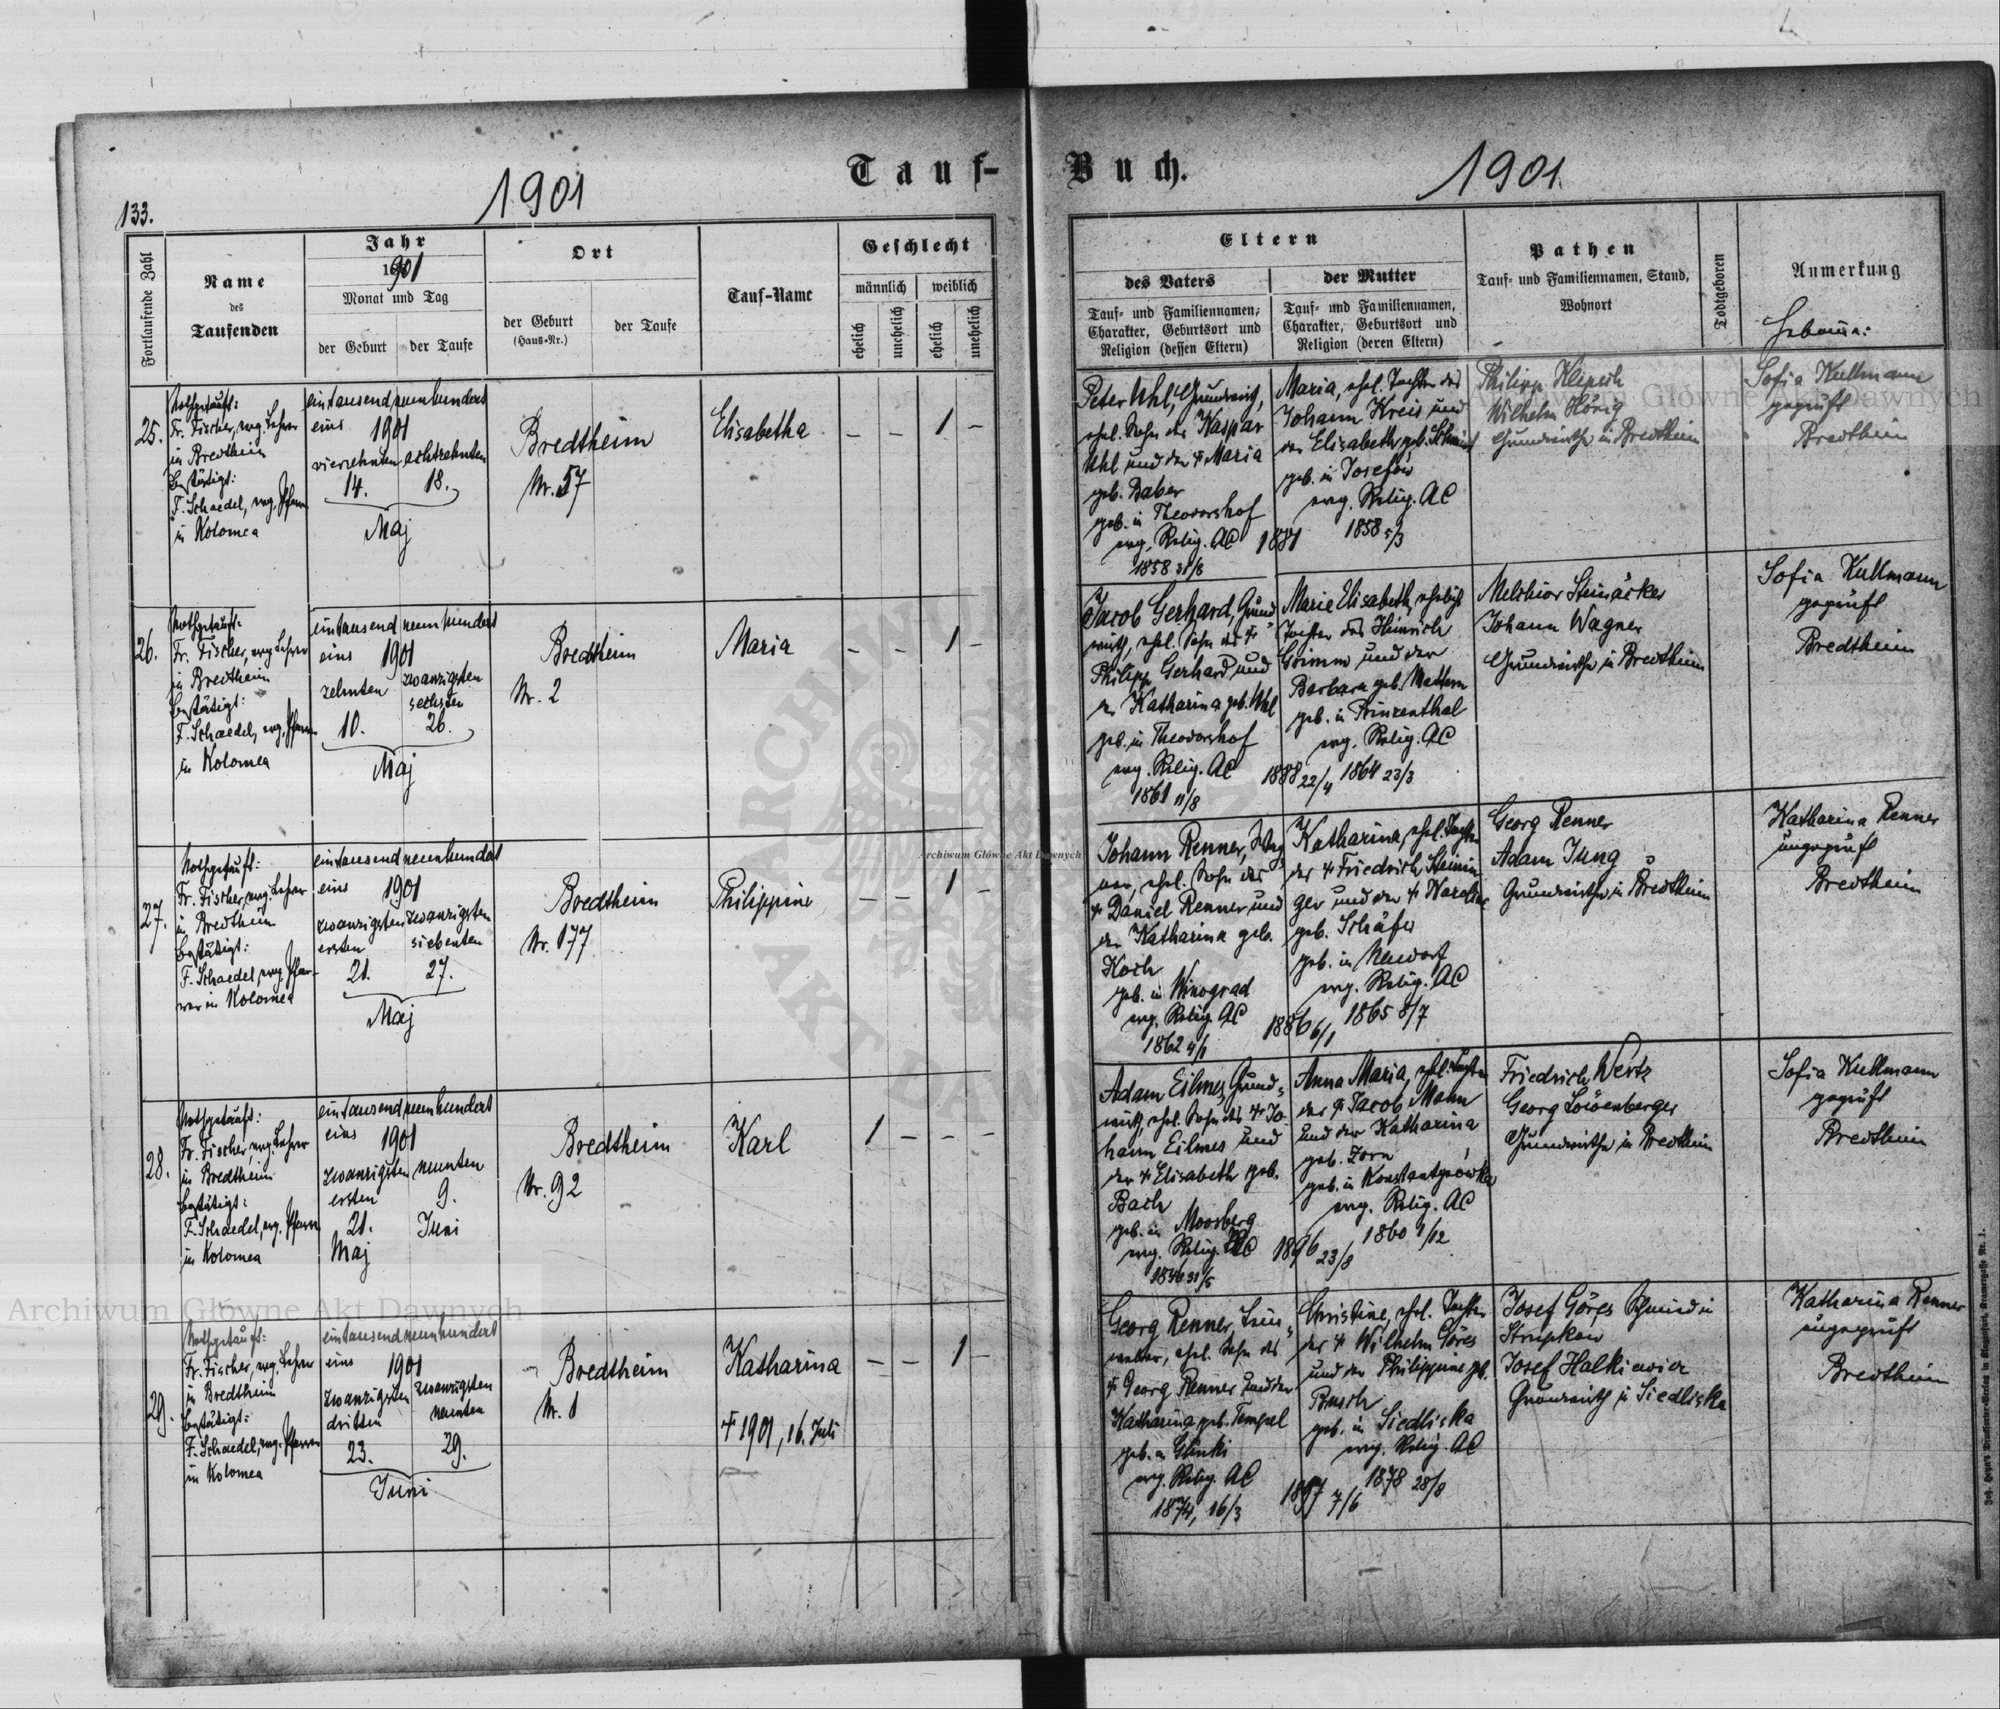 Tauf-Buch.
1901
1901
133.
Fortlaufende Zahl
Name
des
Taufenden
Jahr
1901
Monat und Tag
der Geburt
der Taufe
Ort
der Geburt
(Haus-Nr.)
der Taufe
Tauf-Name
Geschlecht
männlich
weiblich
ehelich
unehelich
ehelich
unehelich
Eltern
des Vaters
Tauf- und Familiennamen,
Charakter, Geburtsort und
Religion (dessen Eltern)
der Mutter
Tauf- und Familiennamen,
Charakter, Geburtsort und
Religion (deren Eltern)
Pathen
Tauf- und Familiennamen, Stand,
Wohnort
Todtgeboren
Anmerkung
Hebamme:
25.
Nothgetauft:
Fr. Fischer, evg. Lehrer
in Bredtheim
Bestätigt:
F. Schaedel, evg. Pfarrer
in Kolomea
eintausendneunhundert
eins 1901
vierzehnten achtzehnten
14. 18.
Maj
Bredtheim
Nr. 57
Elisabetha
– – 1 –
Peter Uhl, Grundwirth,
ehel. Sohn des Kaspar
Uhl und der Maria
geb. Baber
geb. in Theodorshof
evg. Relig. AC
1858 31/8
Maria, ehel. Tochter des
Johann Kreis und
der Elisabeth geb. Schmidt
geb. in Josefow
evg. Relig. AC
1858 5/3
Philipp Klipsch
Wilhelm Hönig
Grundwirthe in Bredtheim
Sofia Kullmann
geprüft
Bredtheim
26.
Nothgetauft:
Fr. Fischer, evg. Lehrer
in Bredtheim
Bestätigt:
F. Schaedel, evg. Pfarrer
in Kolomea
eintausendneunhundert
eins 1901
zehnten zwanzigsten
sechsten
10. 26.
Maj
Bredtheim
Nr. 2
Maria
– – 1 –
Jacob Gerhard, Grund-
wirth, ehel. Sohn des †
Philipp Gerhard und
der Katharina geb. Uhl
geb. in Theodorshof
evg. Relig. AC
1861 11/8
1888 22/4
Marie Elisabeth, ehelige
Tochter des Heinrich
Grimm und der
Barbara geb. Mattern
geb. in Prinzenthal
evg. Relig. AC
1864 23/3
Melchior Steinäcker
Johann Wagner
Grundwirthe in Bredtheim
Sofia Kullmann
geprüft
Bredtheim
27.
Nothgetauft:
Fr. Fischer, evg. Lehrer
in Bredtheim
Bestätigt:
F. Schaedel, evg. Pfar-
rer in Kolomea
eintausendneunhundert
eins 1901
zwanzigsten zwanzigsten
ersten siebenten
21. 27.
Maj
Bredtheim
Nr. 177
Philippine
– – 1 –
Johann Renner, Wag-
ner, ehel. Sohn des
† Daniel Renner und
der Katharina geb.
Koch
geb. in Winograd
evg. Relig. AC
1862 4/1
1886 6/1
Katharina, ehel. Tochter
der † Friedrich Steinin-
ger und der † Karoline
geb. Schäfer
geb. in Neudorf
evg. Relig. AC
1865 8/7
Georg Renner
Adam Jung
Grundwirthe in Bredtheim
Katharina Renner
ungeprüft
Bredtheim
28.
Nothgetauft:
Fr. Fischer, evg. Lehrer
in Bredtheim
Bestätigt:
F. Schaedel, evg. Pfarrer
in Kolomea
eintausendneunhundert
eins 1901
zwanzigsten neunten
ersten 9.
21. Juni
Maj
Bredtheim
Nr. 92
Karl
1 – – –
Adam Eilmes, Grund-
wirth, ehel. Sohn des † Jo-
hann Eilmes und
der † Elisabeth geb.
Bach
geb. in Moosberg
evg. Relig. AC
1846 31/5
1896 23/8
Anna Maria, ehel. Tochter
des † Jacob Mohn
und der Katharina
geb. Zorn
geb. in Konstantynówka
evg. Relig. AC
1860 1/12
Friedrich Wertz
Georg Löwenberger
Grundwirthe in Bredtheim
Sofia Kullmann
geprüft
Bredtheim
29.
Nothgetauft:
Fr. Fischer, evg. Lehrer
in Bredtheim
Bestätigt:
F. Schaedel, evg. Pfarrer
in Kolomea
eintausendneunhundert
eins 1901
zwanzigsten zwanzigsten
dritten neunten
23. 29.
Juni
Bredtheim
Nr. 1
Katharina
† 1901, 16. Juli
– – 1 –
Georg Renner,
ehel. Sohn des
† Georg Renner und der
Katharina geb. Tempel
geb. in Glinki
evg. Relig. AC
1874, 16/3
1897 7/6
Christine, ehel. Tochter
der † Wilhelm Göres
und der Philippine geb.
Busch
geb. in Siedliska
evg. Relig. AC
1878 28/8
Josef Göres Schmied in
Strupkow
Josef Halkiewicz
Grundwirth in Siedliska
Katharina Renner
ungeprüft
Bredtheim
Archiwum Główne Akt Dawnych
Archiwum Główne Akt Dawnych
Archiwum Główne Akt Dawnych